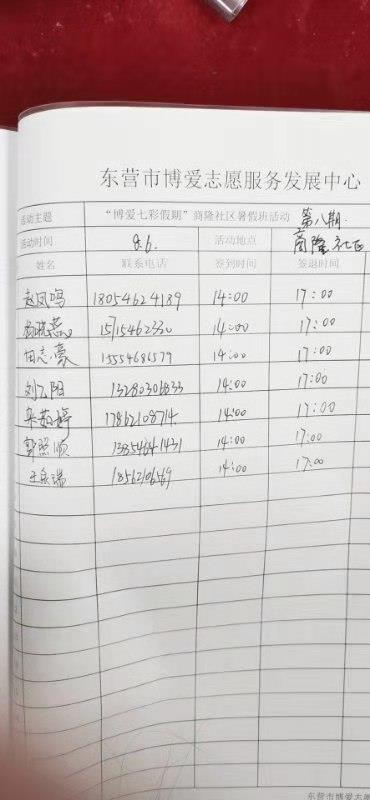 东营市博爱志愿服务发展中心
活动主题 “博爱七彩假期”商隆社区暑假班活动 第八期.
活动时间 8.6. 活动地点 商隆社区
姓名 联系电话 签到时间 签退时间
赵凤鸣 18054624189 14:00 17:00
杨晓燕 15715462330 14:00 17:00
田志豪 15554681579 14:00 17:00
刘云阳 13280306833 14:00 17:00
茹婷 17862108714. 14:00 17:00
照顺 13854641431 14:00 17:00
王 瑞 18562106569 14:00 17:00
东营市博爱志愿